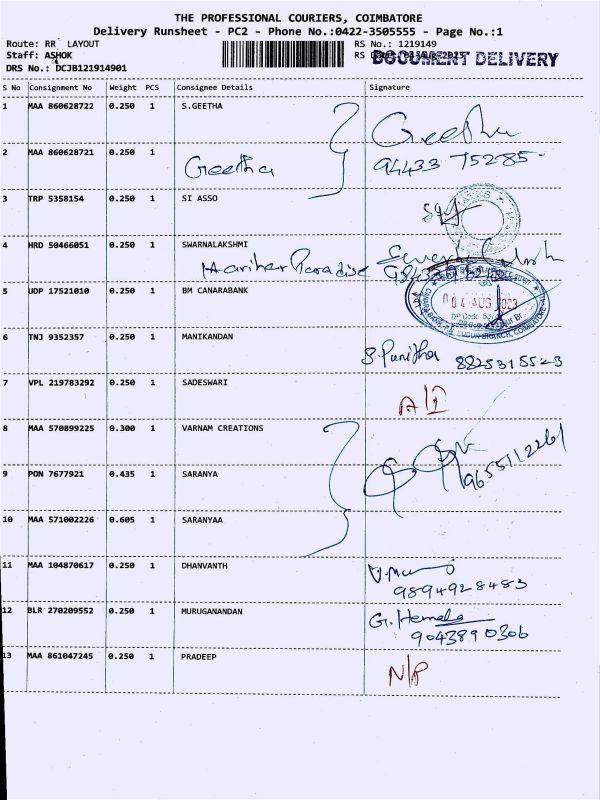 THE PROFESSIONAL COURIERS, COIMBATORE
Delivery Runsheet - PC2 - Phone No.:0422-3505555 - Page No.:1
Route: RR LAYOUT
RS No.: 1219149
Staff: ASHOK
RS
DOCUMENT DELIVERY
DRS No.: DCJB121914901
S No Consignment No Weight PCS Consignee Details Signature
1 MAA 860628722 0.250 1 S.GEETHA Geetha
2 MAA 860628721 0.250 1 Geetha 94433 75285
3 TRP 5358154 0.250 1 SI ASSO
4 HRD 50466051 0.250 1 SWARNALAKSHMI
Harihar Paradise
5 UDP 17521010 0.250 1 BM CANARABANK
04 AUG 2023
6 TNJ 9352357 0.250 1 MANIKANDAN
S. Punitha 8825315523
7 VPL 219783292 0.250 1 SADESWARI
A/I
8 MAA 570899225 0.300 1 VARNAM CREATIONS
9655112261
9 PON 7677921 0.435 1 SARANYA
10 MAA 571002226 0.605 1 SARANYAA
11 MAA 104870617 0.250 1 DHANVANTH
9894928483
12 BLR 270209552 0.250 1 MURUGANANDAN G. Hemala
9043890306
13 MAA 861047245 0.250 1 PRADEEP
N/P